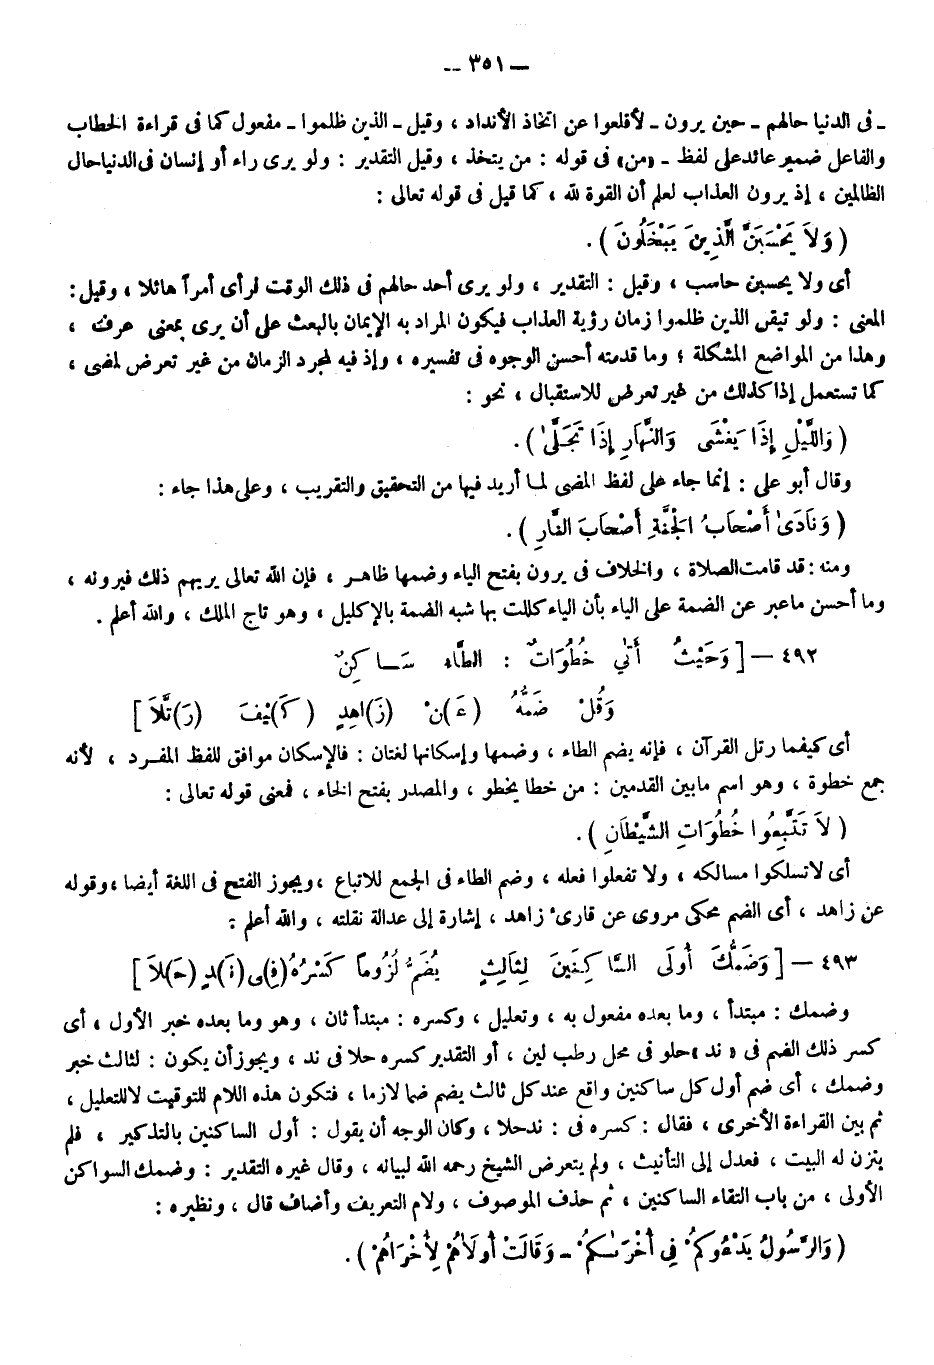 — ٣٥١ —
ـ فى الدنيا حالهم ـ حين يرون ـ لأقلعوا عن اتخاذ الأنداد ، وقيل ـ الذين ظلموا ـ مفعول كما فى قراءة الخطاب
والفاعل ضمير عائد على لفظ ـ «من» فى قوله : من يتخذ ، وقيل التقدير : ولو يرى راء أو إنسان فى الدنيا حال
الظالمين ، إذ يرون العذاب لعلم أن القوة لله ، كما قيل فى قوله تعالى :
( وَلاَ يَحْسَبَنَّ الَّذِينَ يَبْخَلُونَ ) .
أى ولا يحسبن حاسب ، وقيل : التقدير ، ولو يرى أحد حالهم فى ذلك الوقت لرأى أمراً هائلا ، وقيل :
المعنى : ولو تيقن الذين ظلموا زمان رؤية العذاب فيكون المراد به الإيمان بالبعث على أن يرى بمعنى عرف ،
وهذا من المواضع المشكلة ؛ وما قدمته أحسن الوجوه فى تفسيره ، وإذ فيه لمجرد الزمان من غير تعرض لمضى ،
كما تستعمل إذا كذلك من غير تعرض للاستقبال ، نحو :
( وَاللَّيْلِ إِذَا يَغْشَى وَالنَّهَارِ إِذَا تَجَلَّىٰ ) .
وقال أبو على : إنما جاء على لفظ المضى لما أريد فيها من التحقيق والتقريب ، وعلى هذا جاء :
( وَنَادَىٰ أَصْحَابُ الجَنَّةِ أَصْحَابَ النَّارِ ) .
ومنه : قد قامت الصلاة ، والخلاف فى يرون بفتح الياء وضمها ظاهر ، فإن الله تعالى يريهم ذلك فيرونه ،
وما أحسن ما عبر عن الضمة على الياء بأن الياء كللت بها شبه الضمة بالإكليل ، وهو تاج الملك ، والله أعلم .
٤٩٢ — [ وَحَيْثُ أَتَىٰ خُطُوَاتٌ : الطَّاءُ سَاكِنٌ
وَقُلْ ضَمُّهُ (عَ)نْ (زَ)اهِدٍ (كَ)يْفَ (رَ)تَّلاَ ]
أى كيفما رتل القرآن ، فإنه يضم الطاء ، وضمها وإسكانها لغتان : فالإسكان موافق للفظ المفرد ، لأنه
جمع خطوة ، وهو اسم ما بين القدمين : من خطا يخطو ، والمصدر بفتح الخاء ، فمعنى قوله تعالى :
( لاَ تَتَّبِعُوا خُطُوَاتِ الشَّيْطَانِ ) .
أى لا تسلكوا مسالكه ، ولا تفعلوا فعله ، وضم الطاء فى الجمع للاتباع ، ويجوز الفتح فى اللغة أيضا ، وقوله
عن زاهد ، أى الضم محكى مروى عن قارئ زاهد ، إشارة إلى عدالة نقلته ، والله أعلم :
٤٩٣ — [ وَضَمُّكَ أُولَى السَّاكِنَيْنِ لِثَالِثٍ يُضَمُّ لُزُوماً كَسْرُهُ (فِ)ى (نَ)دٍ (حَ)لاَ ]
وضمك : مبتدأ ، وما بعده مفعول به ، وتعليل ، وكسره : مبتدأ ثان ، وهو وما بعده خبر الأول ، أى
كسر ذلك الضم فى « ند » حلو فى محل رطب لين ، أو التقدير كسره حلا فى ند ، ويجوز أن يكون : لثالث خبر
وضمك ، أى ضم أول كل ساكنين واقع عند كل ثالث يضم ضما لازما ، فتكون هذه اللام للتوقيت لا للتعليل ،
ثم بين القراءة الأخرى ، فقال : كسره فى : ند حلا ، وكان الوجه أن يقول : أول الساكنين بالتذكير ، فلم
يتزن له البيت ، فعدل إلى التأنيث ، ولم يتعرض الشيخ رحمه الله لبيانه ، وقال غيره التقدير : وضمك السواكن
الأولى ، من باب التقاء الساكنين ، ثم حذف الموصوف ، ولام التعريف وأضاف قال ، ونظيره :
( وَالرَّسُولُ يَدْعُوكُمْ فِى أُخْرَاكُمْ ـ وَقَالَتْ أُولاَهُمْ لِأُخْرَاهُمْ ) .